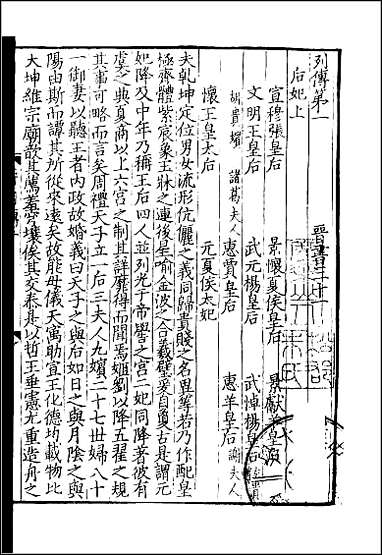 列傳第一　晉書三十一
后妃上
宣穆張皇后　景懷夏侯皇后　景獻羊皇后
文明王皇后　武元楊皇后　武悼楊皇后
胡貴嬪　諸葛夫人　惠賈皇后　惠羊皇后　謝夫人
懷王皇太后　元夏侯太妃
夫乾坤定位男女流形伉儷之義同歸貴賤之名異等若乃作配皇
極齊體紫宸象玉牀之連後星喻金波之合羲璧爰自夐古是謂元
妃降及中年乃稱王后四人並列光于帝嚳之宮二妃同降著彼有
虞之典夏商以上六宮之制其詳靡得而聞焉姬劉以降五翟之規
其事可略而言矣周禮天子立一后三夫人九嬪二十七世婦八十
一御妻以聽王者內政故婚義曰天子之與后如日之與月陰之與
陽由斯而譚其所從來遠矣故能母儀天寓助宣王化德均載物比
大坤維宗廟歆其薦羞穹壤俟其交泰是以哲王垂憲尤重造舟之